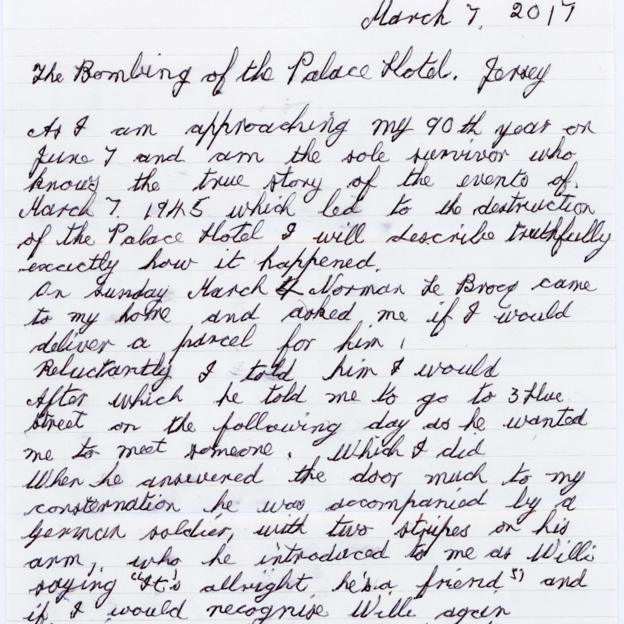 March 7, 2017
The Bombing of the Palace Hotel. Jersey
As I am approaching my 90th year on
June 7 and am the sole survivor who
knows the true story of the events of.
March 7. 1945 which led to the destruction
of the Palace Hotel I will describe truthfully
exactly how it happened.
On Sunday March 4 Norman Le Brocq came
to my home and asked me if I would
deliver a parcel for him.
Reluctantly I told him I would
After which he told me to go to 3 Hue
Street on the following day as he wanted
me to meet someone. Which I did
When he answered the door much to my
consternation he was accompanied by a
German soldier, with two stripes on his
arm, who he introduced to me as Willi
saying "It's allright he's a friend" and
if I would recognise Willi again